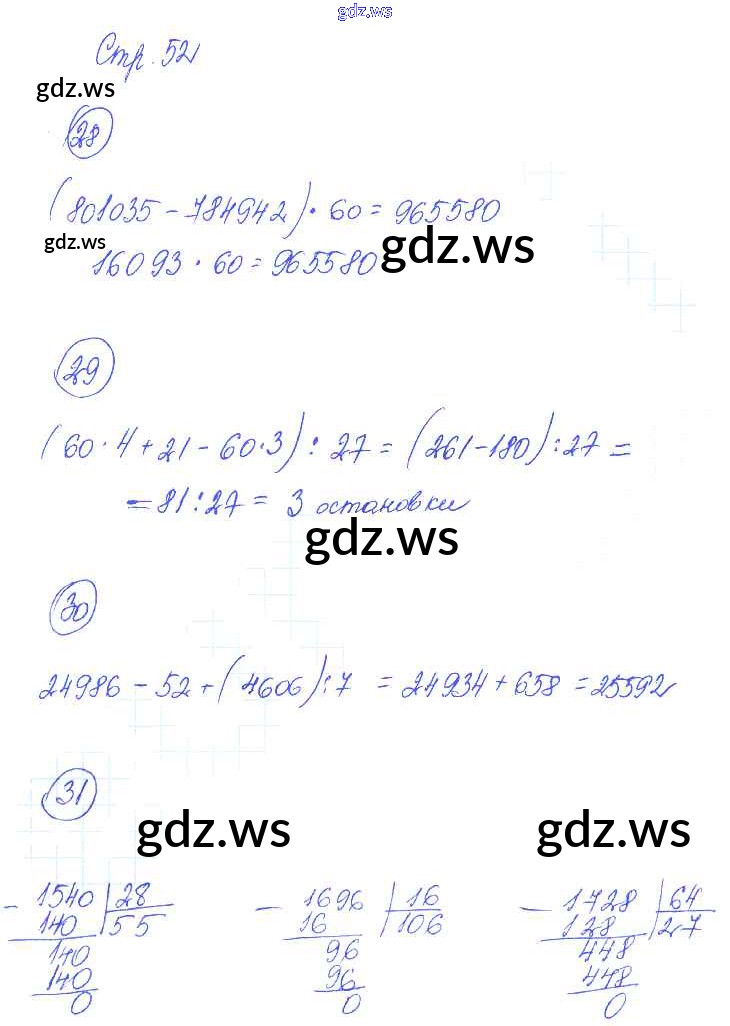 gdz.ws
Стр. 52
gdz.ws
28
(801035 - 784942) · 60 = 965580
gdz.ws
16093 · 60 = 965580
gdz.ws
29
(60 · 4 + 21 - 60 · 3) : 27 = (261 - 180) : 27 =
= 81 : 27 = 3 остановки
gdz.ws
30
24986 - 52 + (4606) : 7 = 24934 + 658 = 25592
31
gdz.ws gdz.ws
- 1540 | 28 - 1696 | 16 - 1728 | 64
140 | 55 16 | 106 128 | 27
140 96 448
140 96 448
0 0 0